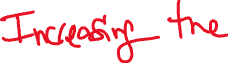 Increasing the